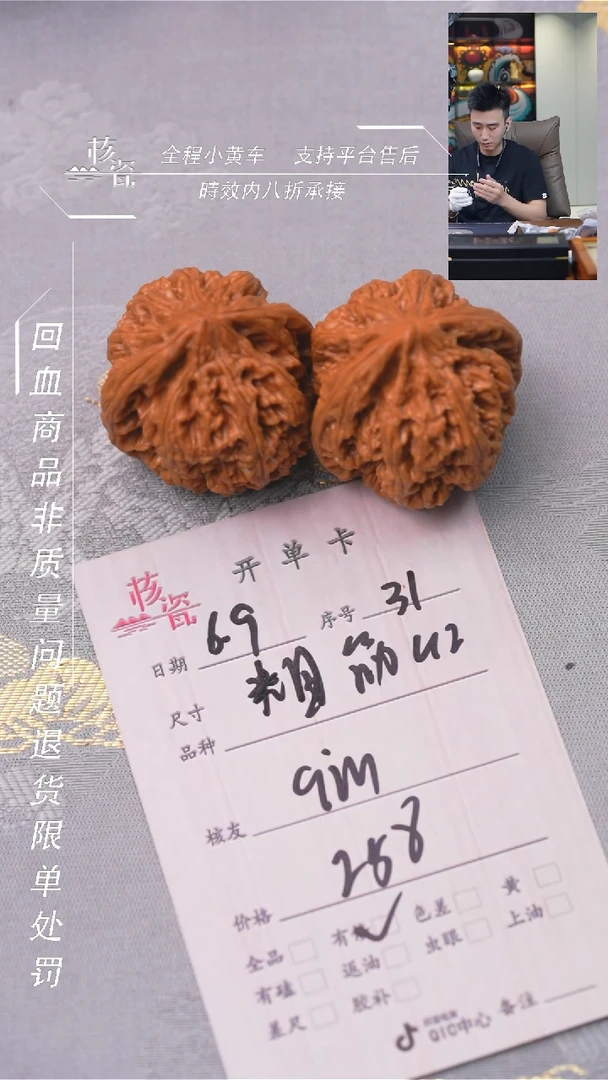 核瓷
全程小黄车 支持平台售后
時效内八折承接
回血商品非质量问题退货限单处罚
核瓷
开单卡
日期 6.9
序号 31
尺寸
粗筋 42
品种
核友 qim
价格 258
全品
色差
黄
有磕
返油
虫眼
上油
差尺
胶补
QIC中心
备注